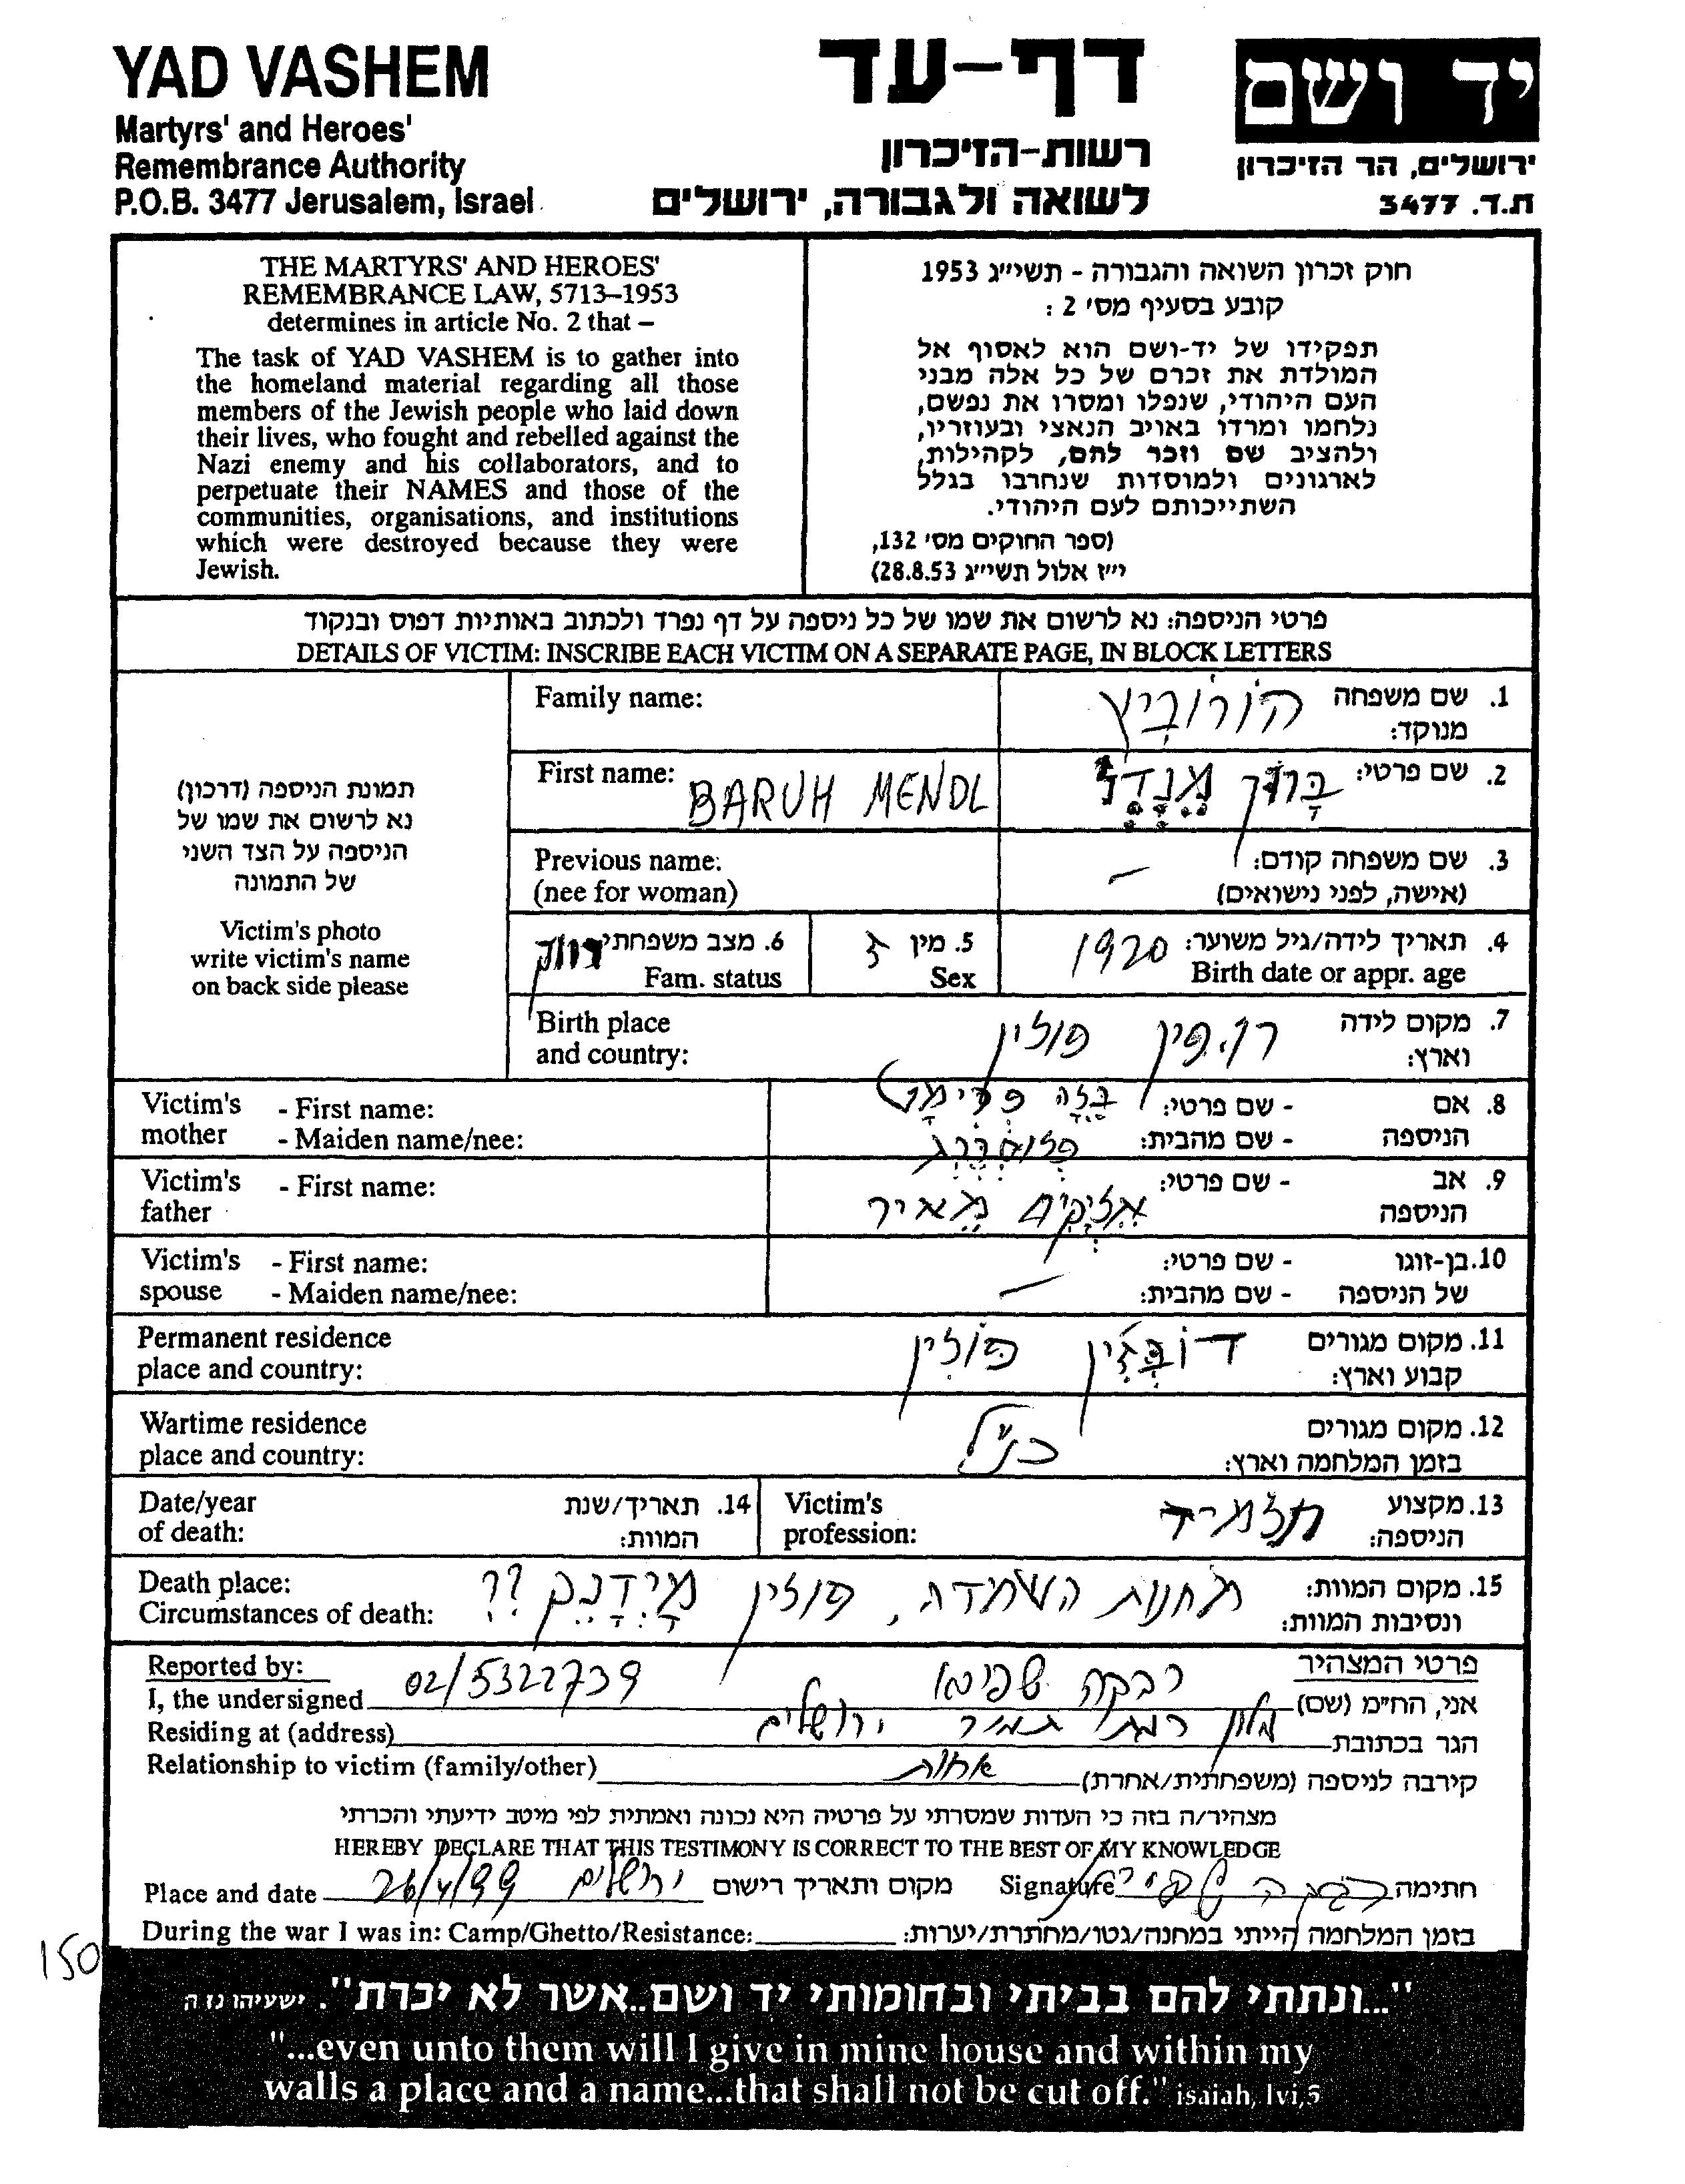 YAD VASHEM
Martyrs' and Heroes'
Remembrance Authority
P.O.B. 3477 Jerusalem, Israel
דף-עד
רשות-הזיכרון
לשואה ולגבורה, ירושלים
יד ושם
ירושלים, הר הזיכרון
ת.ד. 3477
THE MARTYRS' AND HEROES'
REMEMBRANCE LAW, 5713–1953
determines in article No. 2 that –
The task of YAD VASHEM is to gather into
the homeland material regarding all those
members of the Jewish people who laid down
their lives, who fought and rebelled against the
Nazi enemy and his collaborators, and to
perpetuate their NAMES and those of the
communities, organisations, and institutions
which were destroyed because they were
Jewish.
חוק זכרון השואה והגבורה - תשי״ג 1953
קובע בסעיף מס' 2 :
תפקידו של יד-ושם הוא לאסוף אל
המולדת את זכרם של כל אלה מבני
העם היהודי, שנפלו ומסרו את נפשם,
נלחמו ומרדו באויב הנאצי ובעוזריו,
ולהציב שם וזכר להם, לקהילות,
לארגונים ולמוסדות שנחרבו בגלל
השתייכותם לעם היהודי.
(ספר החוקים מס' 132,
י״ז אלול תשי״ג 28.8.53)
פרטי הניספה: נא לרשום את שמו של כל ניספה על דף נפרד ולכתוב באותיות דפוס ובנקוד
DETAILS OF VICTIM: INSCRIBE EACH VICTIM ON A SEPARATE PAGE, IN BLOCK LETTERS
תמונת הניספה (דרכון)
נא לרשום את שמו של
הניספה על הצד השני
של התמונה
Victim's photo
write victim's name
on back side please
Family name:
1. שם משפחה הורוביץ
מנוקד:
First name: BARUH MENDL
2. שם פרטי: ברוך מנדל
Previous name:
(nee for woman)
3. שם משפחה קודם: –
(אישה, לפני נישואים)
4. תאריך לידה/גיל משוער: 1920
Birth date or appr. age
5. מין ז
Sex
6. מצב משפחתי רווק
Fam. status
Birth place
and country:
7. מקום לידה פולין
וארץ:
Victim's - First name:
mother - Maiden name/nee:
8. אם - שם פרטי:
הניספה - שם מהבית:
Victim's - First name:
father
9. אב - שם פרטי: מאיר
הניספה
Victim's - First name:
spouse - Maiden name/nee:
10. בן-זוגו - שם פרטי: –
של הניספה - שם מהבית:
Permanent residence
place and country:
11. מקום מגורים פולין
קבוע וארץ:
Wartime residence
place and country:
12. מקום מגורים כנ״ל
בזמן המלחמה וארץ:
Date/year
of death:
14. תאריך/שנת
המוות:
Victim's
profession:
13. מקצוע תלמיד
הניספה:
Death place:
Circumstances of death:
15. מקום המוות: מחנות השמדה, פולין מידנק ??
ונסיבות המוות:
Reported by:
פרטי המצהיר
I, the undersigned 02/5322739
אני, הח״מ (שם) רבקה שפירא
Residing at (address)
הגר בכתובת מלון רמת תמיר ירושלים
Relationship to victim (family/other)
קירבה לניספה (משפחתית/אחרת) אחות
מצהיר/ה בזה כי העדות שמסרתי על פרטיה היא נכונה ואמתית לפי מיטב ידיעתי והכרתי
HEREBY DECLARE THAT THIS TESTIMONY IS CORRECT TO THE BEST OF MY KNOWLEDGE
Place and date 26/4/99 ירושלים מקום ותאריך רישום
Signature רבקה שפירא חתימה
During the war I was in: Camp/Ghetto/Resistance:
בזמן המלחמה הייתי במחנה/גטו/מחתרת/יערות:
150
"...ונתתי להם בביתי ובחומותי יד ושם..אשר לא יכרת". ישעיהו נו ה
"...even unto them will I give in mine house and within my
walls a place and a name...that shall not be cut off." isaiah, lvi,5